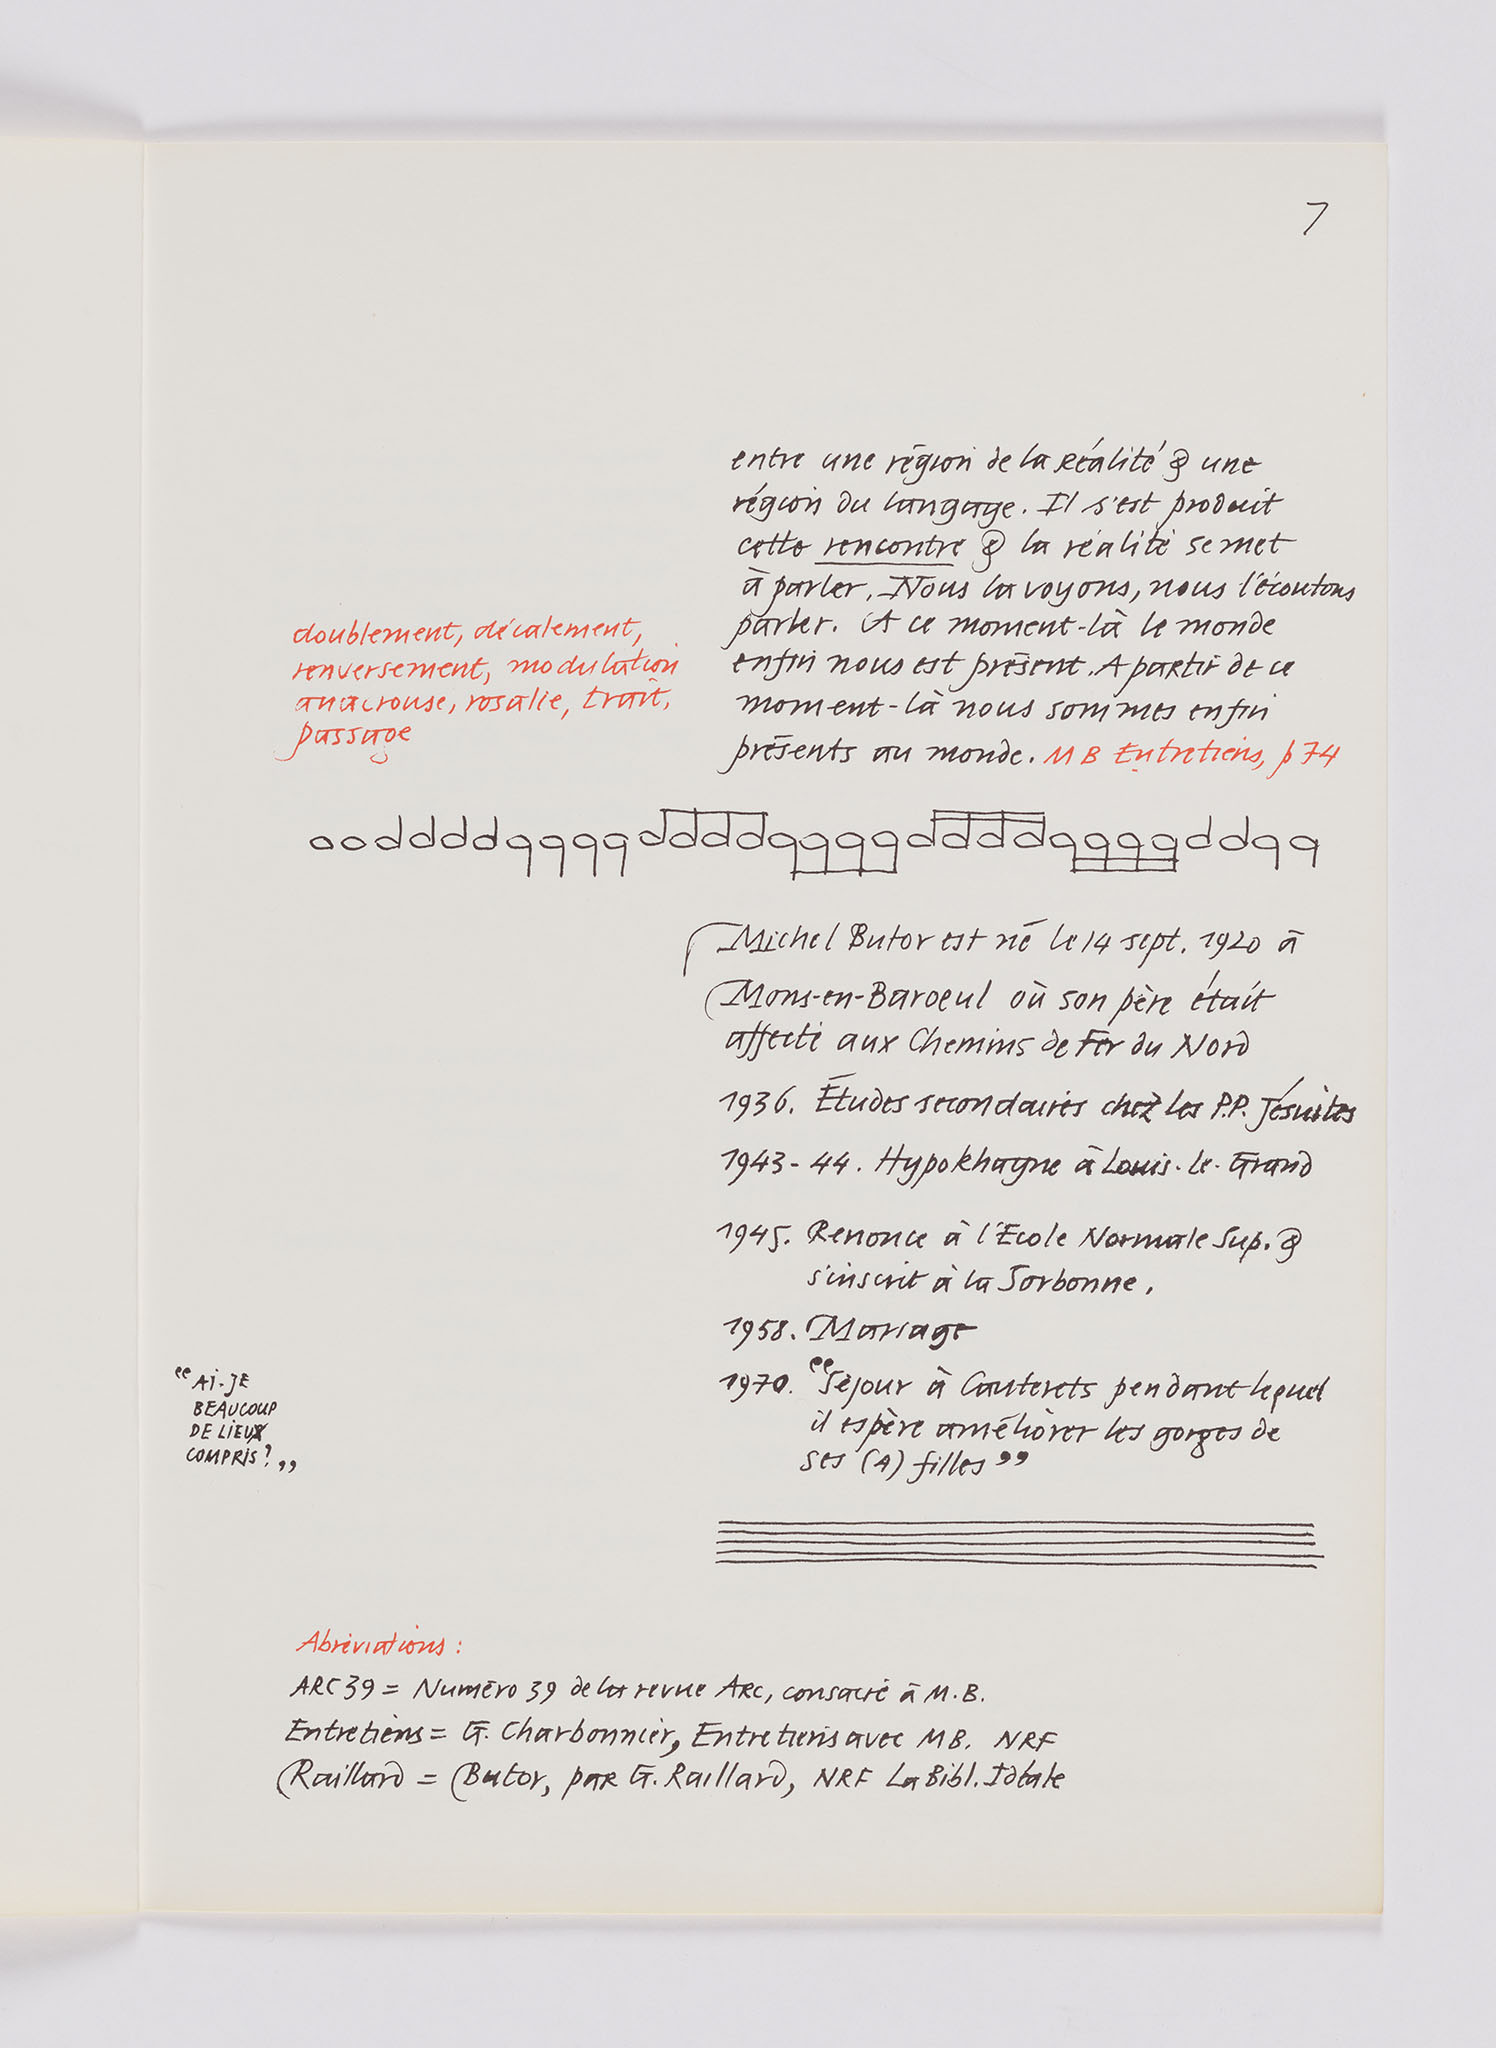 7
entre une région de la Réalité & une
région du langage. Il s'est produit
cette rencontre & la réalité se met
à parler. Nous la voyons, nous l'écoutons
parler. A ce moment-là le monde
enfin nous est présent. A partir de ce
moment-là nous sommes enfin
présents au monde. MB Entretiens, p 74
doublement, décalement,
renversement, modulation
anacrouse, rosalie, trait,
passage
Michel Butor est né le 14 sept. 1920 à
Mons-en-Baroeul où son père était
affecté aux Chemins de Fer du Nord
1936. Études secondaires chez les P.P. Jésuites
1943-44. Hypokhagne à Louis-le-Grand
1945. Renonce à l'Ecole Normale Sup. &
s'inscrit à la Sorbonne.
1958. Mariage
1970. “Séjour à Cauterets pendant lequel
il espère améliorer les gorges de
ses (4) filles”
“AI-JE
BEAUCOUP
DE LIEUX
COMPRIS?”
Abréviations :
ARC 39 = Numéro 39 de la revue Arc, consacré à M.B.
Entretiens = G. Charbonnier, Entretiens avec MB. NRF
Raillard = Butor, par G. Raillard, NRF La Bibl. Idéale